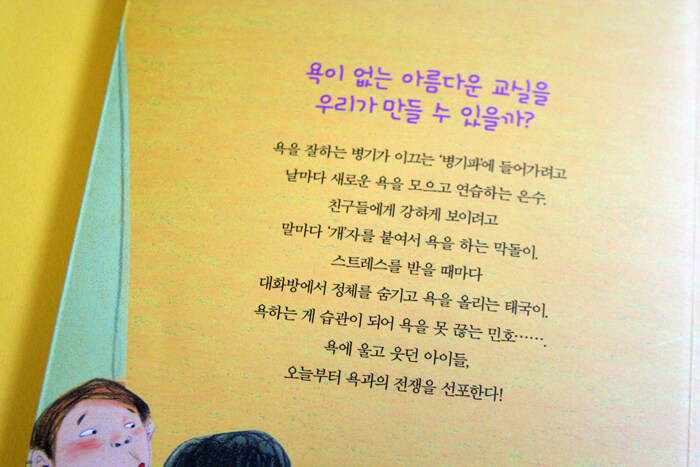 욕이 없는 아름다운 교실을
우리가 만들 수 있을까?
욕을 잘하는 병기가 이끄는 '병기파'에 들어가려고
날마다 새로운 욕을 모으고 연습하는 은수.
친구들에게 강하게 보이려고
말마다 '개'자를 붙여서 욕을 하는 막돌이.
스트레스를 받을 때마다
대화방에서 정체를 숨기고 욕을 올리는 태국이.
욕하는 게 습관이 되어 욕을 못 끊는 민호…….
욕에 울고 웃던 아이들,
오늘부터 욕과의 전쟁을 선포한다!